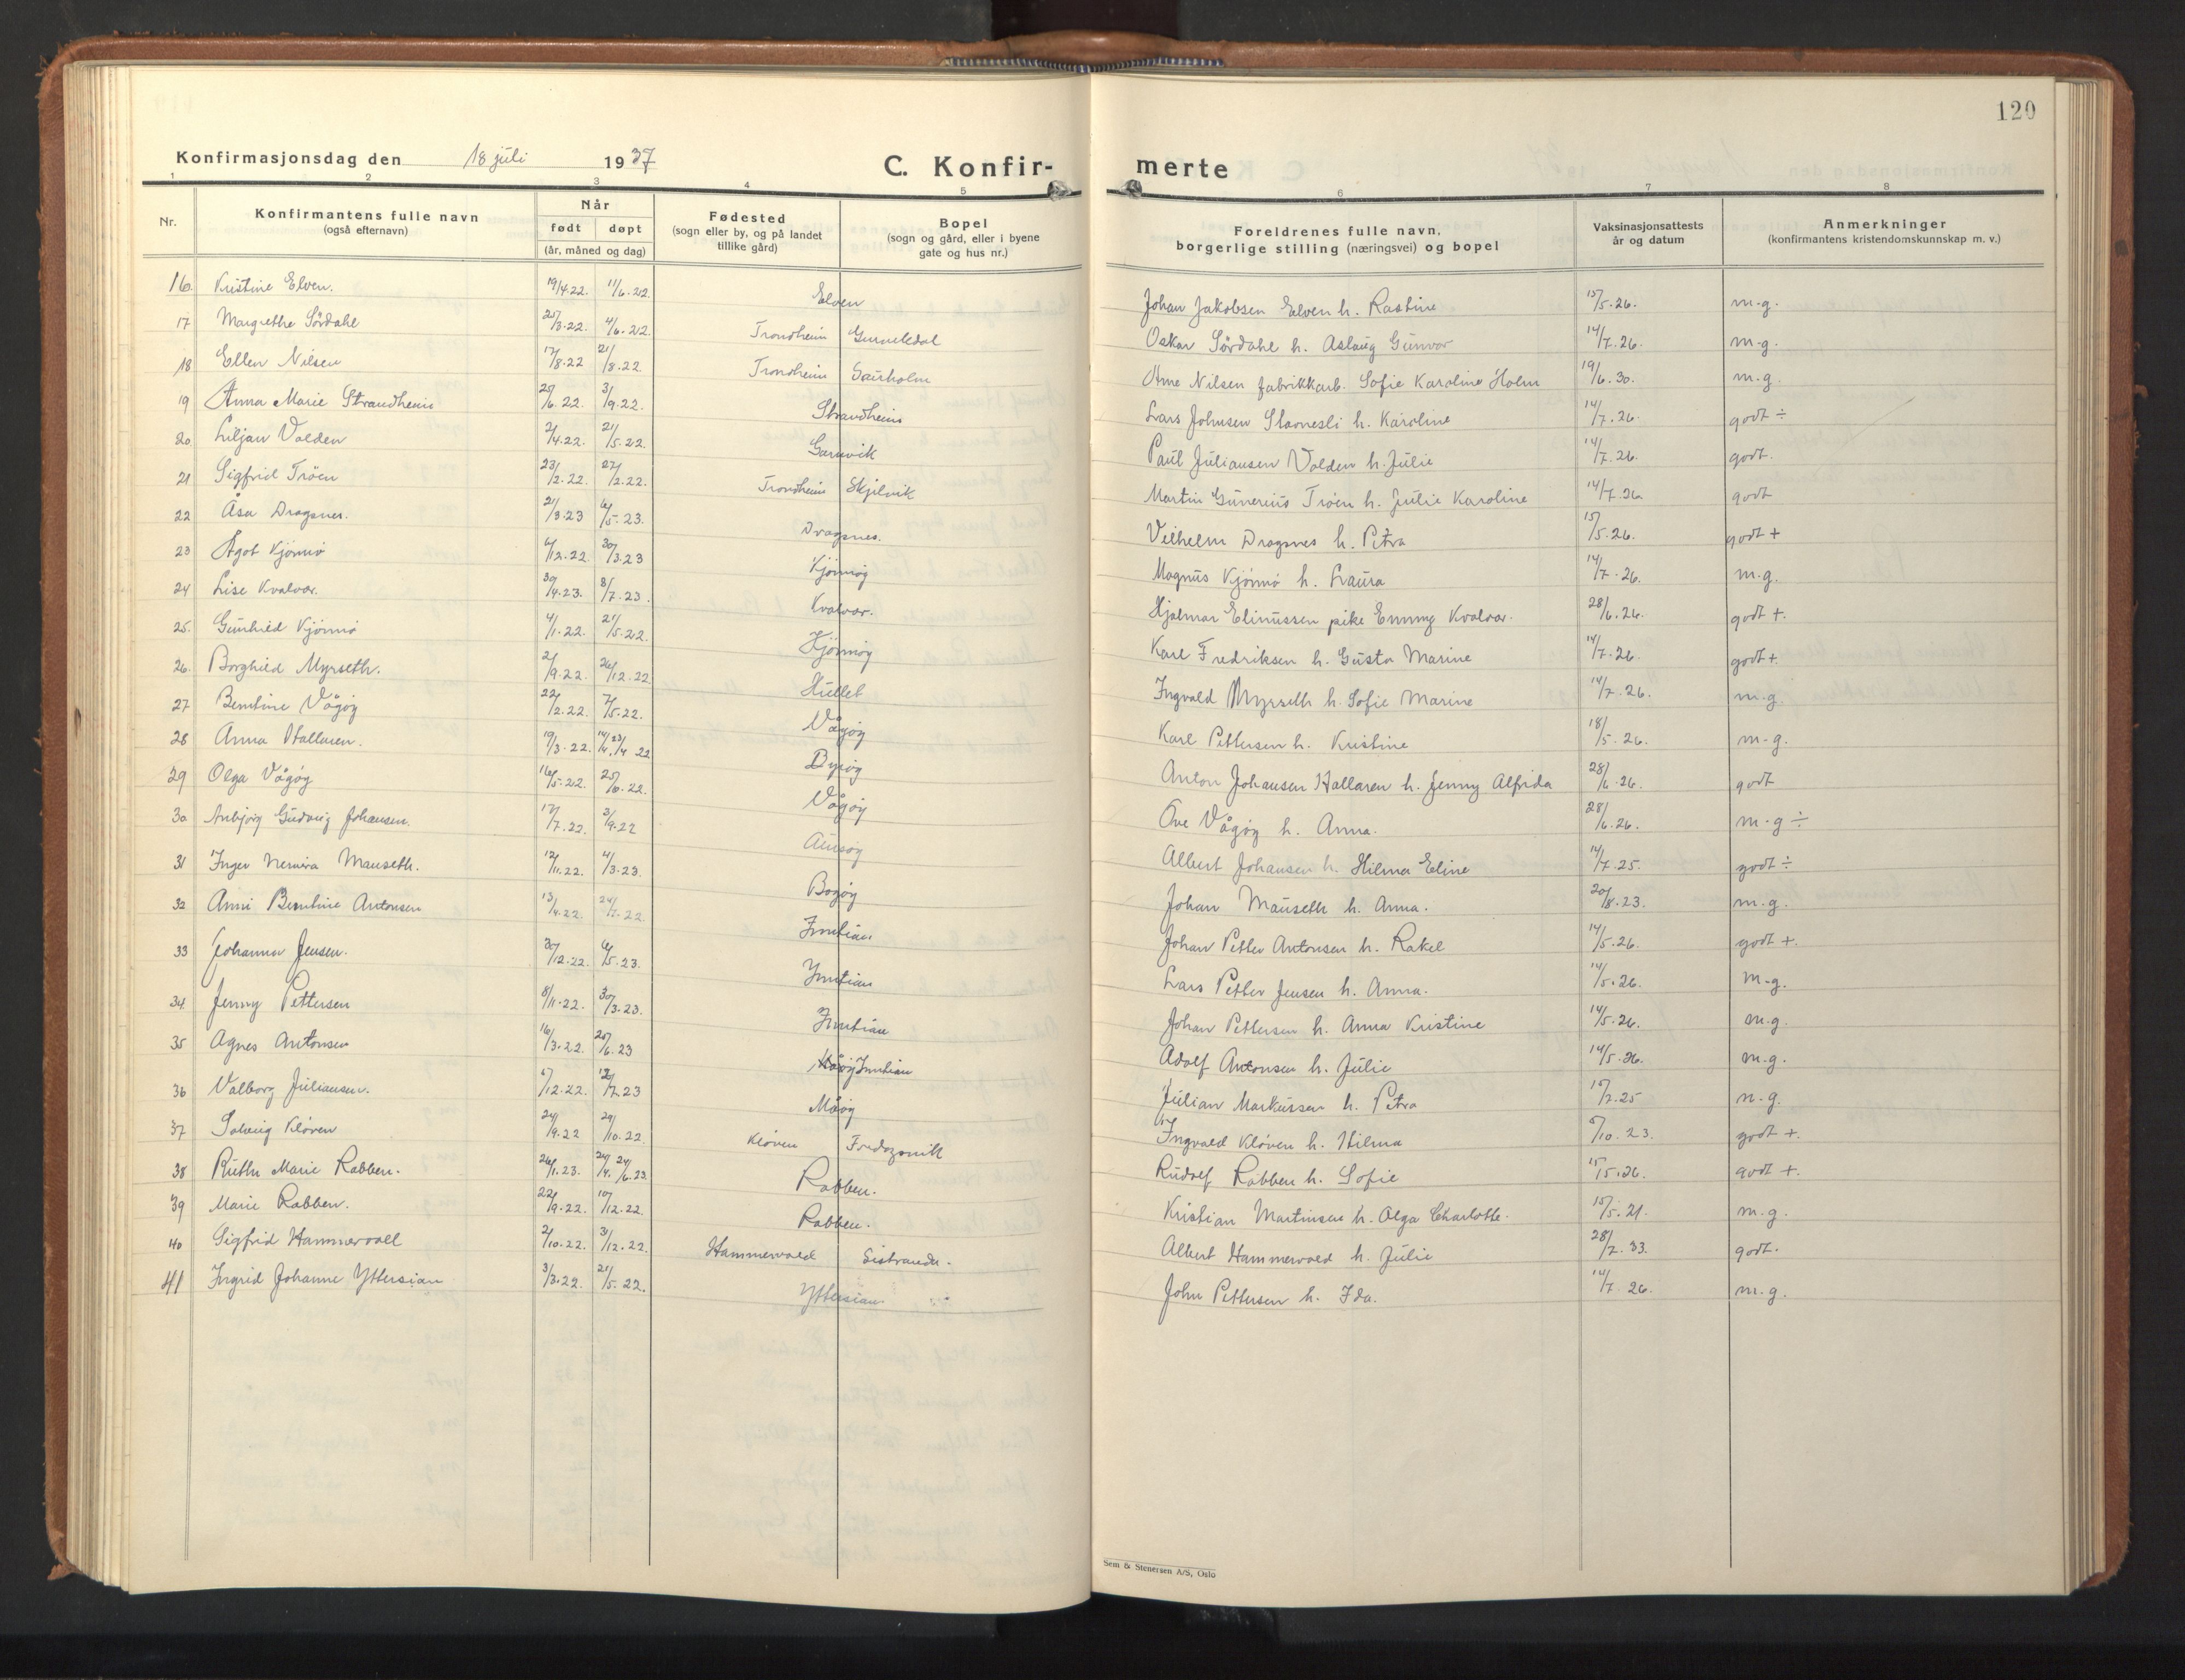 120
Konfirmasjonsdag den 18 juli 1937
C. Konfir-
merte
1 2 3 4 5 6 7 8
Nr.
Konfirmantens fulle navn
(også efternavn)
Når
født døpt
(år, måned og dag)
Fødested
(sogn eller by, og på landet
tillike gård)
Bopel
(sogn og gård, eller i byene
gate og hus nr.)
Foreldrenes fulle navn,
borgerlige stilling (næringsvei) og bopel
Vaksinasjonsattests
år og datum
Anmerkninger
(konfirmantens kristendomskunnskap m. v.)
16. Kristine Elven. 19/4.22. 11/6.22. Elven Johan Jakobsen Elven h. Rastine 15/5.26. m.g.
17 Margrethe Sørdahl 25/3.22. 4/6.22. Trondheim Oskar Sørdahl h. Aslaug Gunvor 14/7.26. m.g.
18 Ellen Nilsen 17/8.22 21/8.22. Trondheim Gaurholm Arne Nilsen fabrikkarb. Sofie Karoline Holm 19/6.30. m.g.
19 Anna Marie Strandheim 25/6.22. 3/9.22. Strandheim Lars Johnsen Stavnesli h. Karoline 14/7.26. godt ÷
20. Liljan Valden 2/4.22. 21/5.22. Garnvik Paul Juliansen Valden h. Julie 14/7.26. godt.
21 Sigfrid Trøen 23/2.22. 27/2.22. Trondheim Skjelvik Martin Gunerius Trøen h. Julie Karoline 14/7.26 godt
22 Åsa Dragsnes. 21/3.23 6/5.23. Dragsnes. Vilhelm Dragsnes h. Petra 15/5.26. godt +
23 Ågot Kjønnø 6/12.22. 30/3.23 Kjønnøy Magnus Kjønnø h. Laura 14/7.26. m.g.
24 Lise Kvalvær. 30/4.23. 8/7.23. Kvalvær. Hjalmar Elinussen pike Emmy Kvalvær. 28/6.26. godt +.
25. Gunhild Kjønnø 4/1.22. 21/5.22. Kjönnøy Karl Fredriksen h. Gusta Marine 14/7.26. godt +.
26. Borghild Myrseth. 2/9.22. 26/12.22. Hullet Ingvald Myrseth h. Sofie Marine 14/7.26. m.g.
27 Berntine Vågøy 22/2.22. 7/5.22. Vågøy Karl Pettersen h. Kristine 18/5.26. m.g.
28 Anna Hallaren. 19/3.22. 14/4. 23/4 22 Dyrøy Anton Johansen Hallaren h. Jenny Alfrida 28/6.26. godt
29 Olga Vågøy 16/5.22. 25/6.22. Vågøy Ove Vågøy h. Anna. 28/6.26. m.g ÷
30 Anbjørg Gudveig Johansen. 17/7.22. 3/9.22 Aunøy Albert Johansen h. Hilma Eline 14/7.25. godt ÷
31 Inger Nemira Mauseth. 12/11.22. 4/3.23. Bogøy Johan Mauseth h. Anna. 20/8.23. m.g.
32 Anni Berntine Antonsen 13/4.22. 24/7.22. Inntian Johan Petter Antonsen h. Rakel 14/5.26. godt +.
33 Johanna Jensen. 30/12.22. 6/5.23. Inntian Lars Petter Jensen h. Anna. 14/5.26. m.g.
34. Jenny Pettersen 8/11.22. 30/3.23. Inntian Johan Pettersen h. Anna Kristine 14/5.26. m.g.
35 Agnes Antonsen 16/3.22. 25/6.23 Inntian Adolf Antonsen h. Julie 14/5.26. m.g.
36 Valborg Juliansen. 6/12.22. 12/7.23 Måøy Julian Markussen h. Petra 15/7.25 m.g.
37 Solveig Kløven 24/9.22 29/10.22. Kløven Fredagsvik Ingvald Kløven h. Hilma 6/10.23. godt +.
38 Ruth Marie Rabben. 26/1.23. 24/4. 24/6.23. Rabben. Rudolf Rabben h. Sofie 15/5.26. godt +.
39 Marie Rabben. 22/9.22. 10/12.22. Rabben. Kristian Martinsen h. Olga Charlotte. 15/5.21. m.g.
40 Sigfrid Hammervoll 2/10.22. 31/12.22. Hammervold Sistranda. Albert Hammervold h. Julie 28/2.33. godt.
41 Ingrid Johanne Yttersian 3/3.22. 21/5.22. Yttersian John Pettersen h. Ida. 14/7.26. m.g.
Sem & Stenersen A/S, Oslo